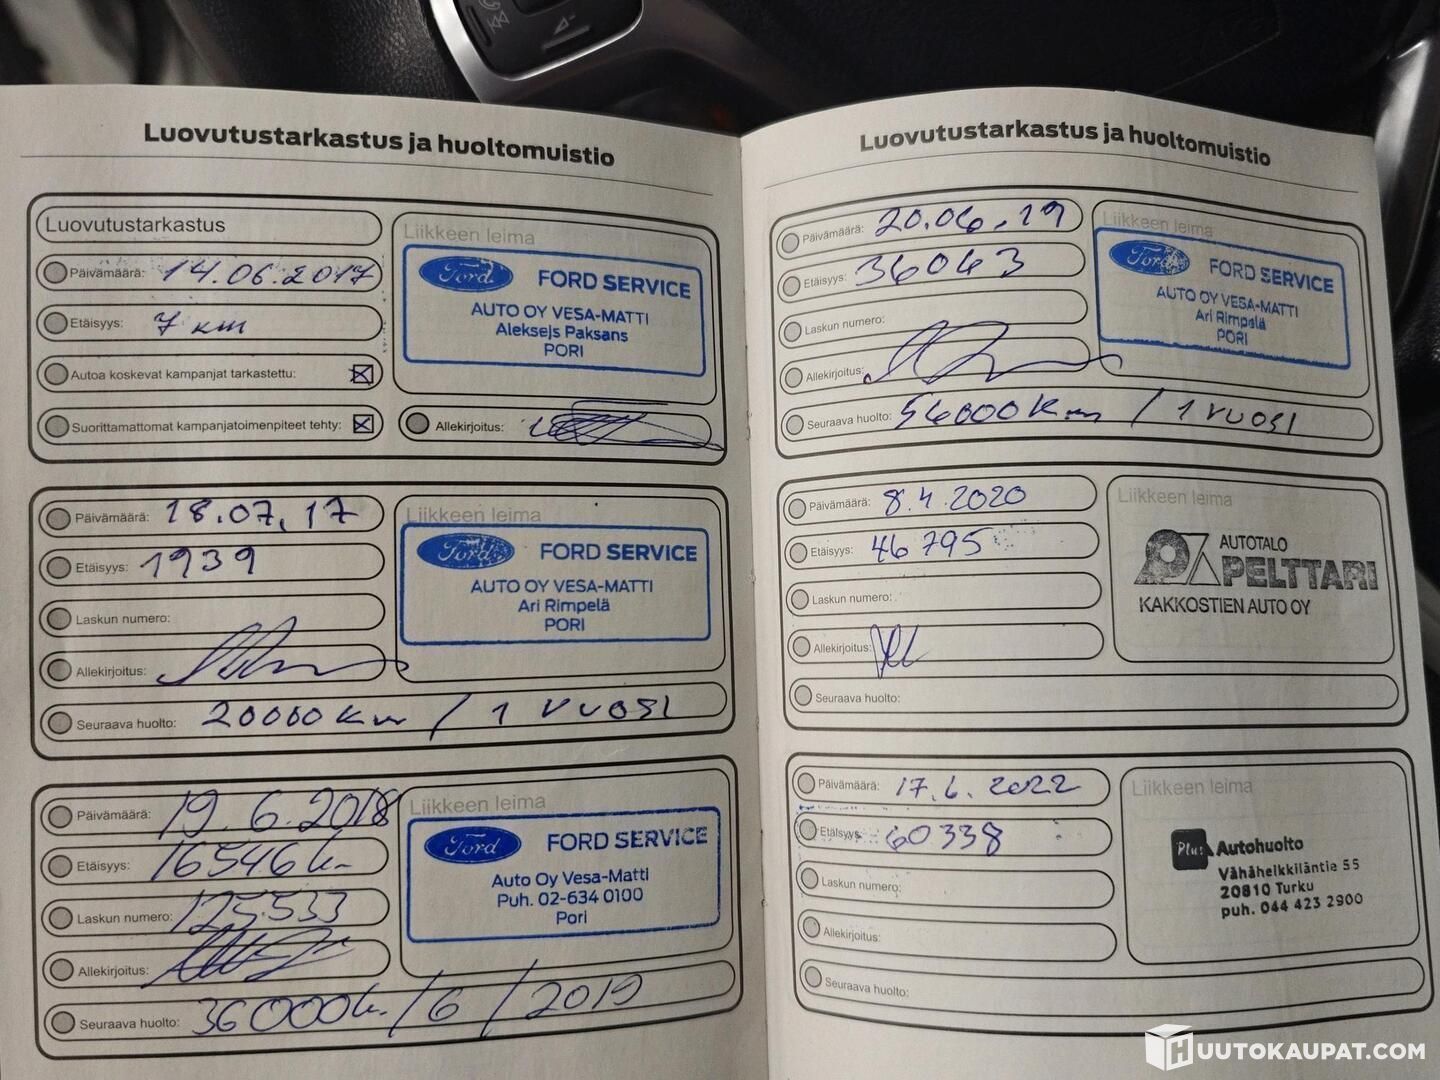 Luovutustarkastus ja huoltomuistio
Luovutustarkastus
Päivämäärä: 14.06.2017
Etäisyys: 7 km
Autoa koskevat kampanjat tarkastettu:
Suorittamattomat kampanjatoimenpiteet tehty:
Liikkeen leima
Ford FORD SERVICE
AUTO OY VESA-MATTI
Aleksejs Paksans
PORI
Allekirjoitus:
Päivämäärä: 18.07.17
Etäisyys: 1939
Laskun numero:
Allekirjoitus:
Seuraava huolto: 20000 km / 1 VUOSI
Liikkeen leima
Ford FORD SERVICE
AUTO OY VESA-MATTI
Ari Rimpelä
PORI
Päivämäärä: 19.6.2018
Etäisyys: 16546 k
Laskun numero: 125533
Allekirjoitus:
Seuraava huolto: 36000 k / 6 / 2019
Liikkeen leima
Ford FORD SERVICE
Auto Oy Vesa-Matti
Puh. 02-634 0100
Pori
Luovutustarkastus ja huoltomuistio
Päivämäärä: 20.06.19
Etäisyys: 36063
Laskun numero:
Allekirjoitus:
Seuraava huolto: 56000 km / 1 VUOSI
Liikkeen leima
Ford FORD SERVICE
AUTO OY VESA-MATTI
Ari Rimpelä
PORI
Päivämäärä: 8.4.2020
Etäisyys: 46795
Laskun numero:
Allekirjoitus:
Seuraava huolto:
Liikkeen leima
AUTOTALO
PELTTARI
KAKKOSTIEN AUTO OY
Päivämäärä: 17.6.2022
Etäisyys: 60338
Laskun numero:
Allekirjoitus:
Seuraava huolto:
Liikkeen leima
Plus Autohuolto
Vähäheikkiläntie 55
20810 Turku
puh. 044 423 2900
HUUTOKAUPAT.COM